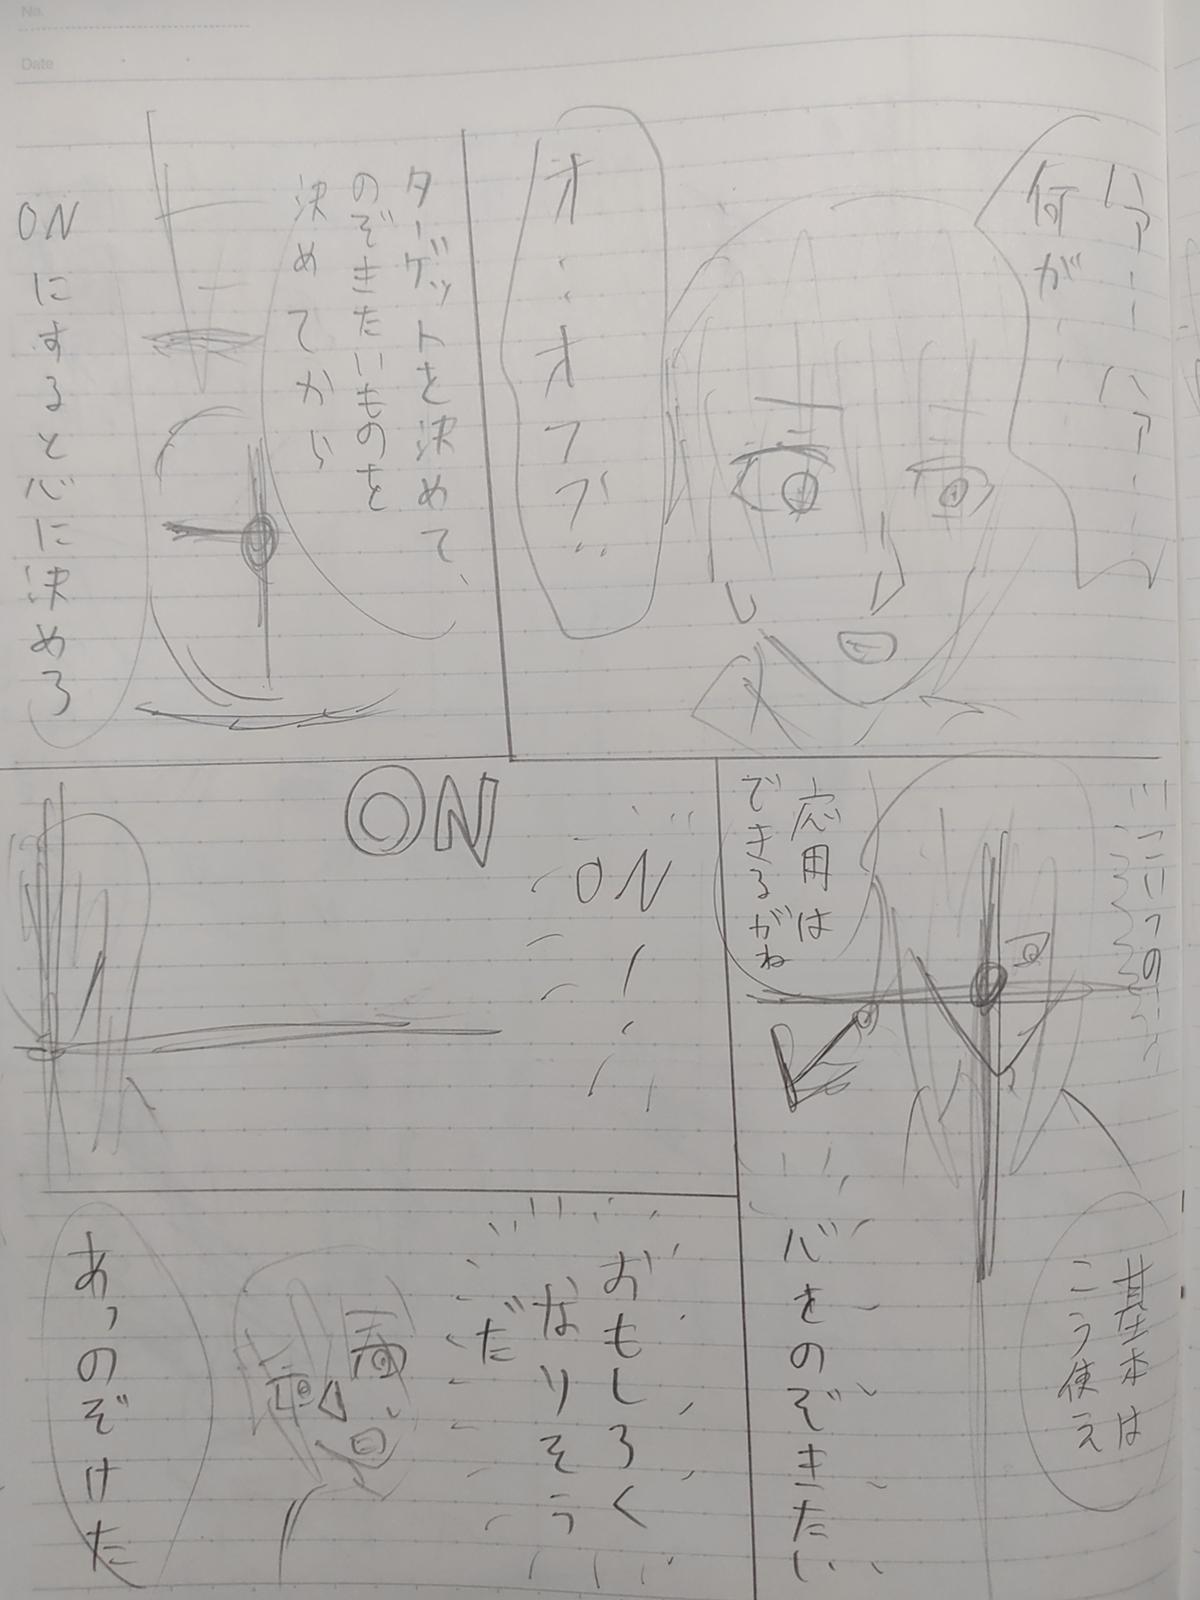 No.
Date
ハァーーハァ‥
何が‥
オ‥オフ‥
ターゲットを決めて、
のぞきたいものを
決めてから
ONにすると心に決めろ
こいつの
応用は
できるがね
基本は
こう使え
心をのぞきたい
ON
ON
おもしろく
なりそう
だ
あっのぞけた